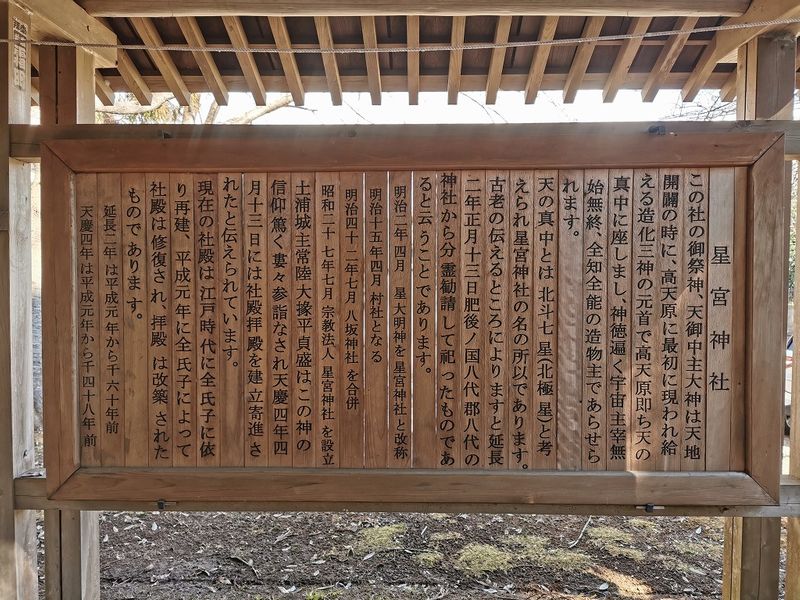 星宮神社
この社の御祭神、天御中主大神は天地
開闢の時に、高天原に最初に現われ給
える造化三神の元首で高天原即ち天の
真中に座しまし、神徳遍く宇宙主宰無
始無終、全知全能の造物主であらせら
れます。
天の真中とは北斗七星（北極星）と考
えられ星宮神社の名の所以であります。
古老の伝えるところによりますと延長
二年正月十三日肥後ノ国八代郡八代の
神社から分霊勧請して祀ったものであ
ると云うことであります。
明治二年四月 星大明神を星宮神社と改称
明治十五年四月 村社となる
明治四十二年七月 八坂神社を合併
昭和二十七年七月 宗教法人 星宮神社を設立
土浦城主常陸大掾平貞盛はこの神の
信仰篤く屡々参詣なされ天慶四年四
月十三日には社殿拝殿を建立寄進さ
れたと伝えられています。
現在の社殿は江戸時代に全氏子に依
り再建、平成元年に全氏子によって
社殿は修復され、拝殿は改築された
ものであります。
延長二年は平成元年から千六十年前
天慶四年は平成元年から千四十八年前